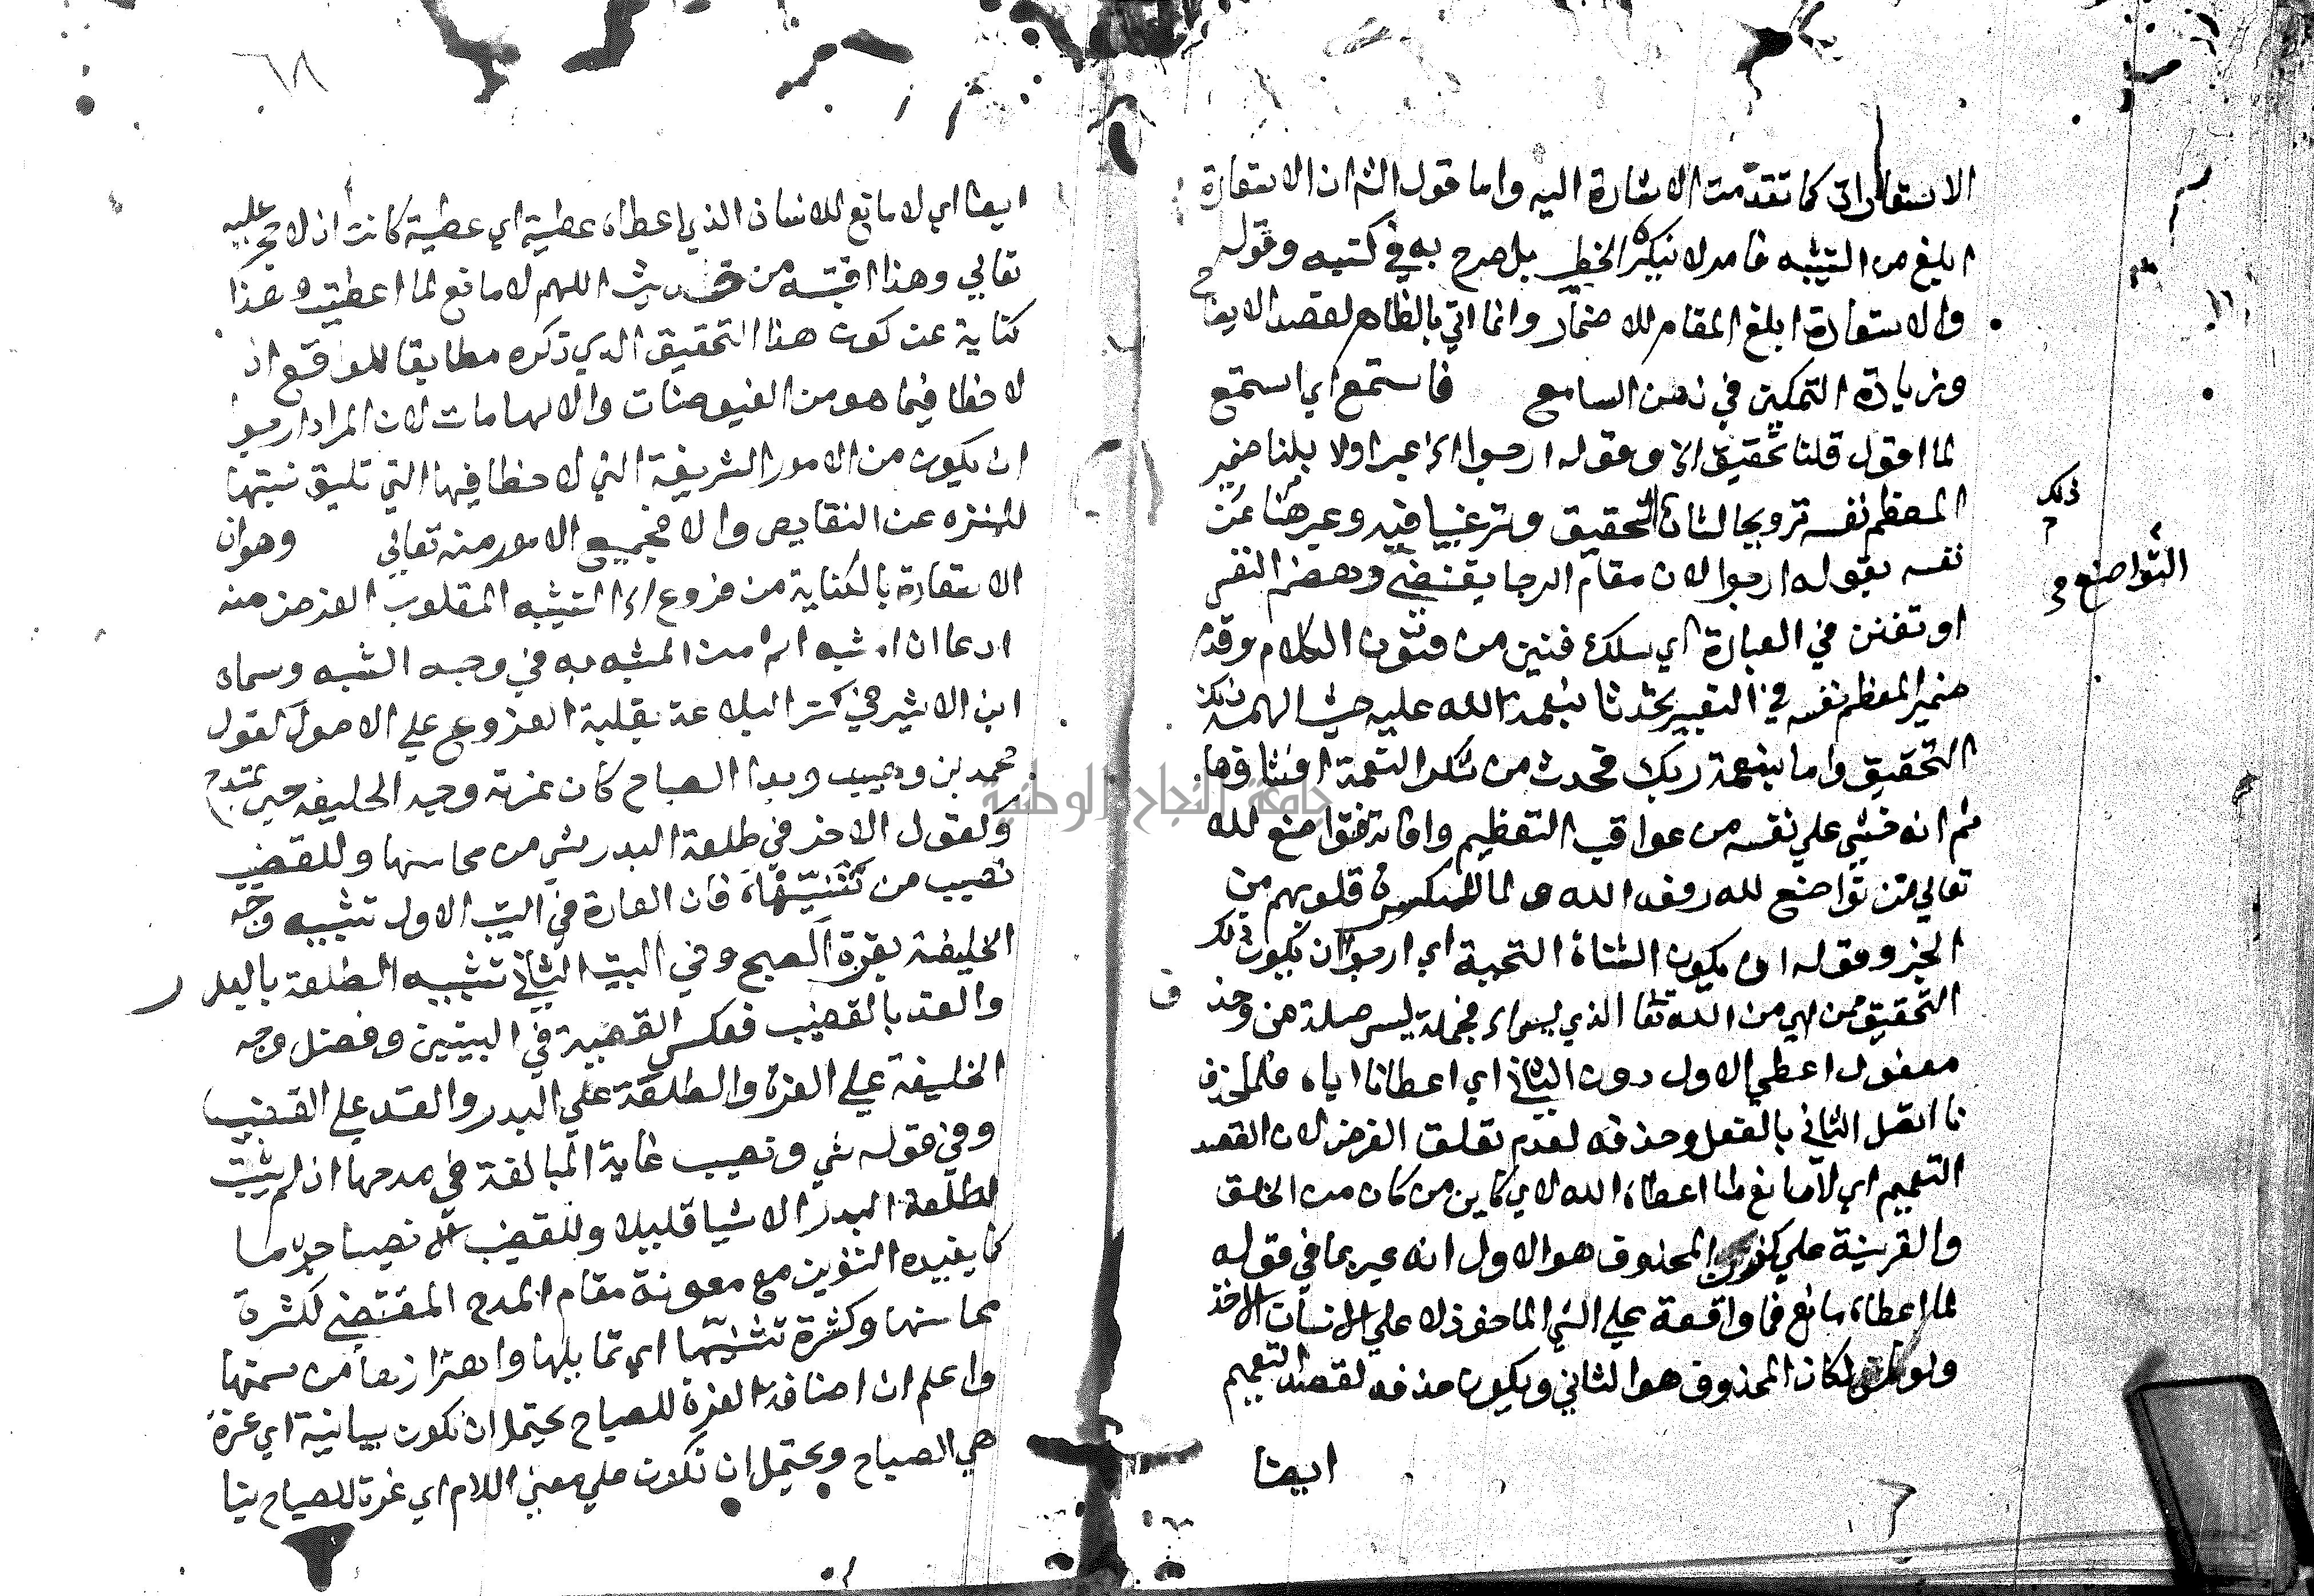 الاستعارات كما تقدمت الاشارة اليه واما قول الشم ان الاستعارة
ابلغ من التشبيه فامر لا ينكره الخطيب بل صرح به في كتبه وقوله
والاستعارة ابلغ المقام للاضمار وانما اتي بالظاهر لقصد الايضاح
وزيادة التمكين في ذهن السامع فاستمع اي استمع
لما اقول قلنا تحقيق الخ وقوله ارجوا الخ عبر اولا بلنا ضمير
المعظم نفسه ترويجا لشان التحقيق وترغيبا فيه وعبر هنا عن
نفسه بقوله ارجوا لان مقام الرجا يقتضي وهضم النفس
ذلك
التواضع
او تفنن في العبارة اي سلك فنين من فنون الكلام وقدم
ضمير المعظم نفسه في التعبير تحدثا بنعمة الله عليه حيث الهمه ذلك
التحقيق واما بنعمة ربك فحدث من شكر النعمة افشاؤها
ثم انه خشي علي نفسه من عواقب التعظيم وافاته فتواضع لله
تعالي فمن تواضع لله رفعه الله و لما قلوبهم من
الخبر وقوله ان يكون المثناة التحتية اي ارجوا ان يكون ذلك
التحقيق ممن اي من الله تعا الذي ليس الخ فجملة ليس صلة من وحذف
مفعول اعطي الاول دون الثاني اي اعطانا اياه فلما حذف
نا اتصل الثاني بالفعل وحذفه لعدم تعلق الغرض لان القصد
التعميم اي لا مانع لما اعطاه الله لاي كاين من كان من الخلق
والقرينة علي كون المحذوف هو الاول انه عبر بما في قوله
لما اعطاه مانع فما واقعة علي الشي الماخوذ لا علي الانسان الاخذ
ولو لكان المحذوف هو الثاني ويكون حذفه لقصد التعميم
ايضا
٦٨
ايضا اي لا مانع للانسان الذي اعطاه عطية اي عطية كانت اذ لا حجر عليه
تعالي وهذا اقتبسه من حديث اللهم لا مانع لما اعطيت وهذا
كناية عن كون هذا التحقيق الذي ذكره مطابقا للواقع اذ
لا خطا فيما هو من الفيوضات والالهامات لان المراد ارجوا
ان يكون من الامور الشريفة التي لا خطا فيها التي تليق نسبتها
للمنزه عن النقايص والا فجميع الامور منه تعالي وهو ان
الاستعارة بالكناية من فروع الخ التشبيه المقلوب الغرض منه
ادعا ان المشبه اتم من المشبه به في وجه الشبه وسماه
ابن الاثير في كنز البلاغة بغلبة الفروع علي الاصول كقول
محمد بن وهيب وبدا الصباح كان غرته وجه الخليفة حين يمتدح
وكقول الاخر في طلعة البدر شي من محاسنها وللقضيب
نصيب من تثنيها فان العادة في البيت الاول تشبيه وجه
الخليفة بغرة الصبح وفي البيت الثاني تشبيه الطلعة بالبدر
والقد بالقضيب فعكس القضية في البيتين وفضل وجه
الخليفة علي الغرة والطلعة علي البدر والقد علي القضيب
وفي قوله شي ونصيب غاية المبالغة في مدحها اذ لم يثبت
لطلعة البدر الا شيا قليلا وللقضيب الا نصيبا ما
كما يفيده التنوين مع معونة مقام المدح المقتضي لكثرة
محاسنها وكثرة تثنيها اي تمايلها واهتزازها من سمتها
واعلم ان اضافة الغرة للصباح يحتمل ان تكون بيانية اي غرة
هي الصباح ويحتمل ان تكون علي معني اللام اي غرة للصباح بنا
جامعة النجاح الوطنية